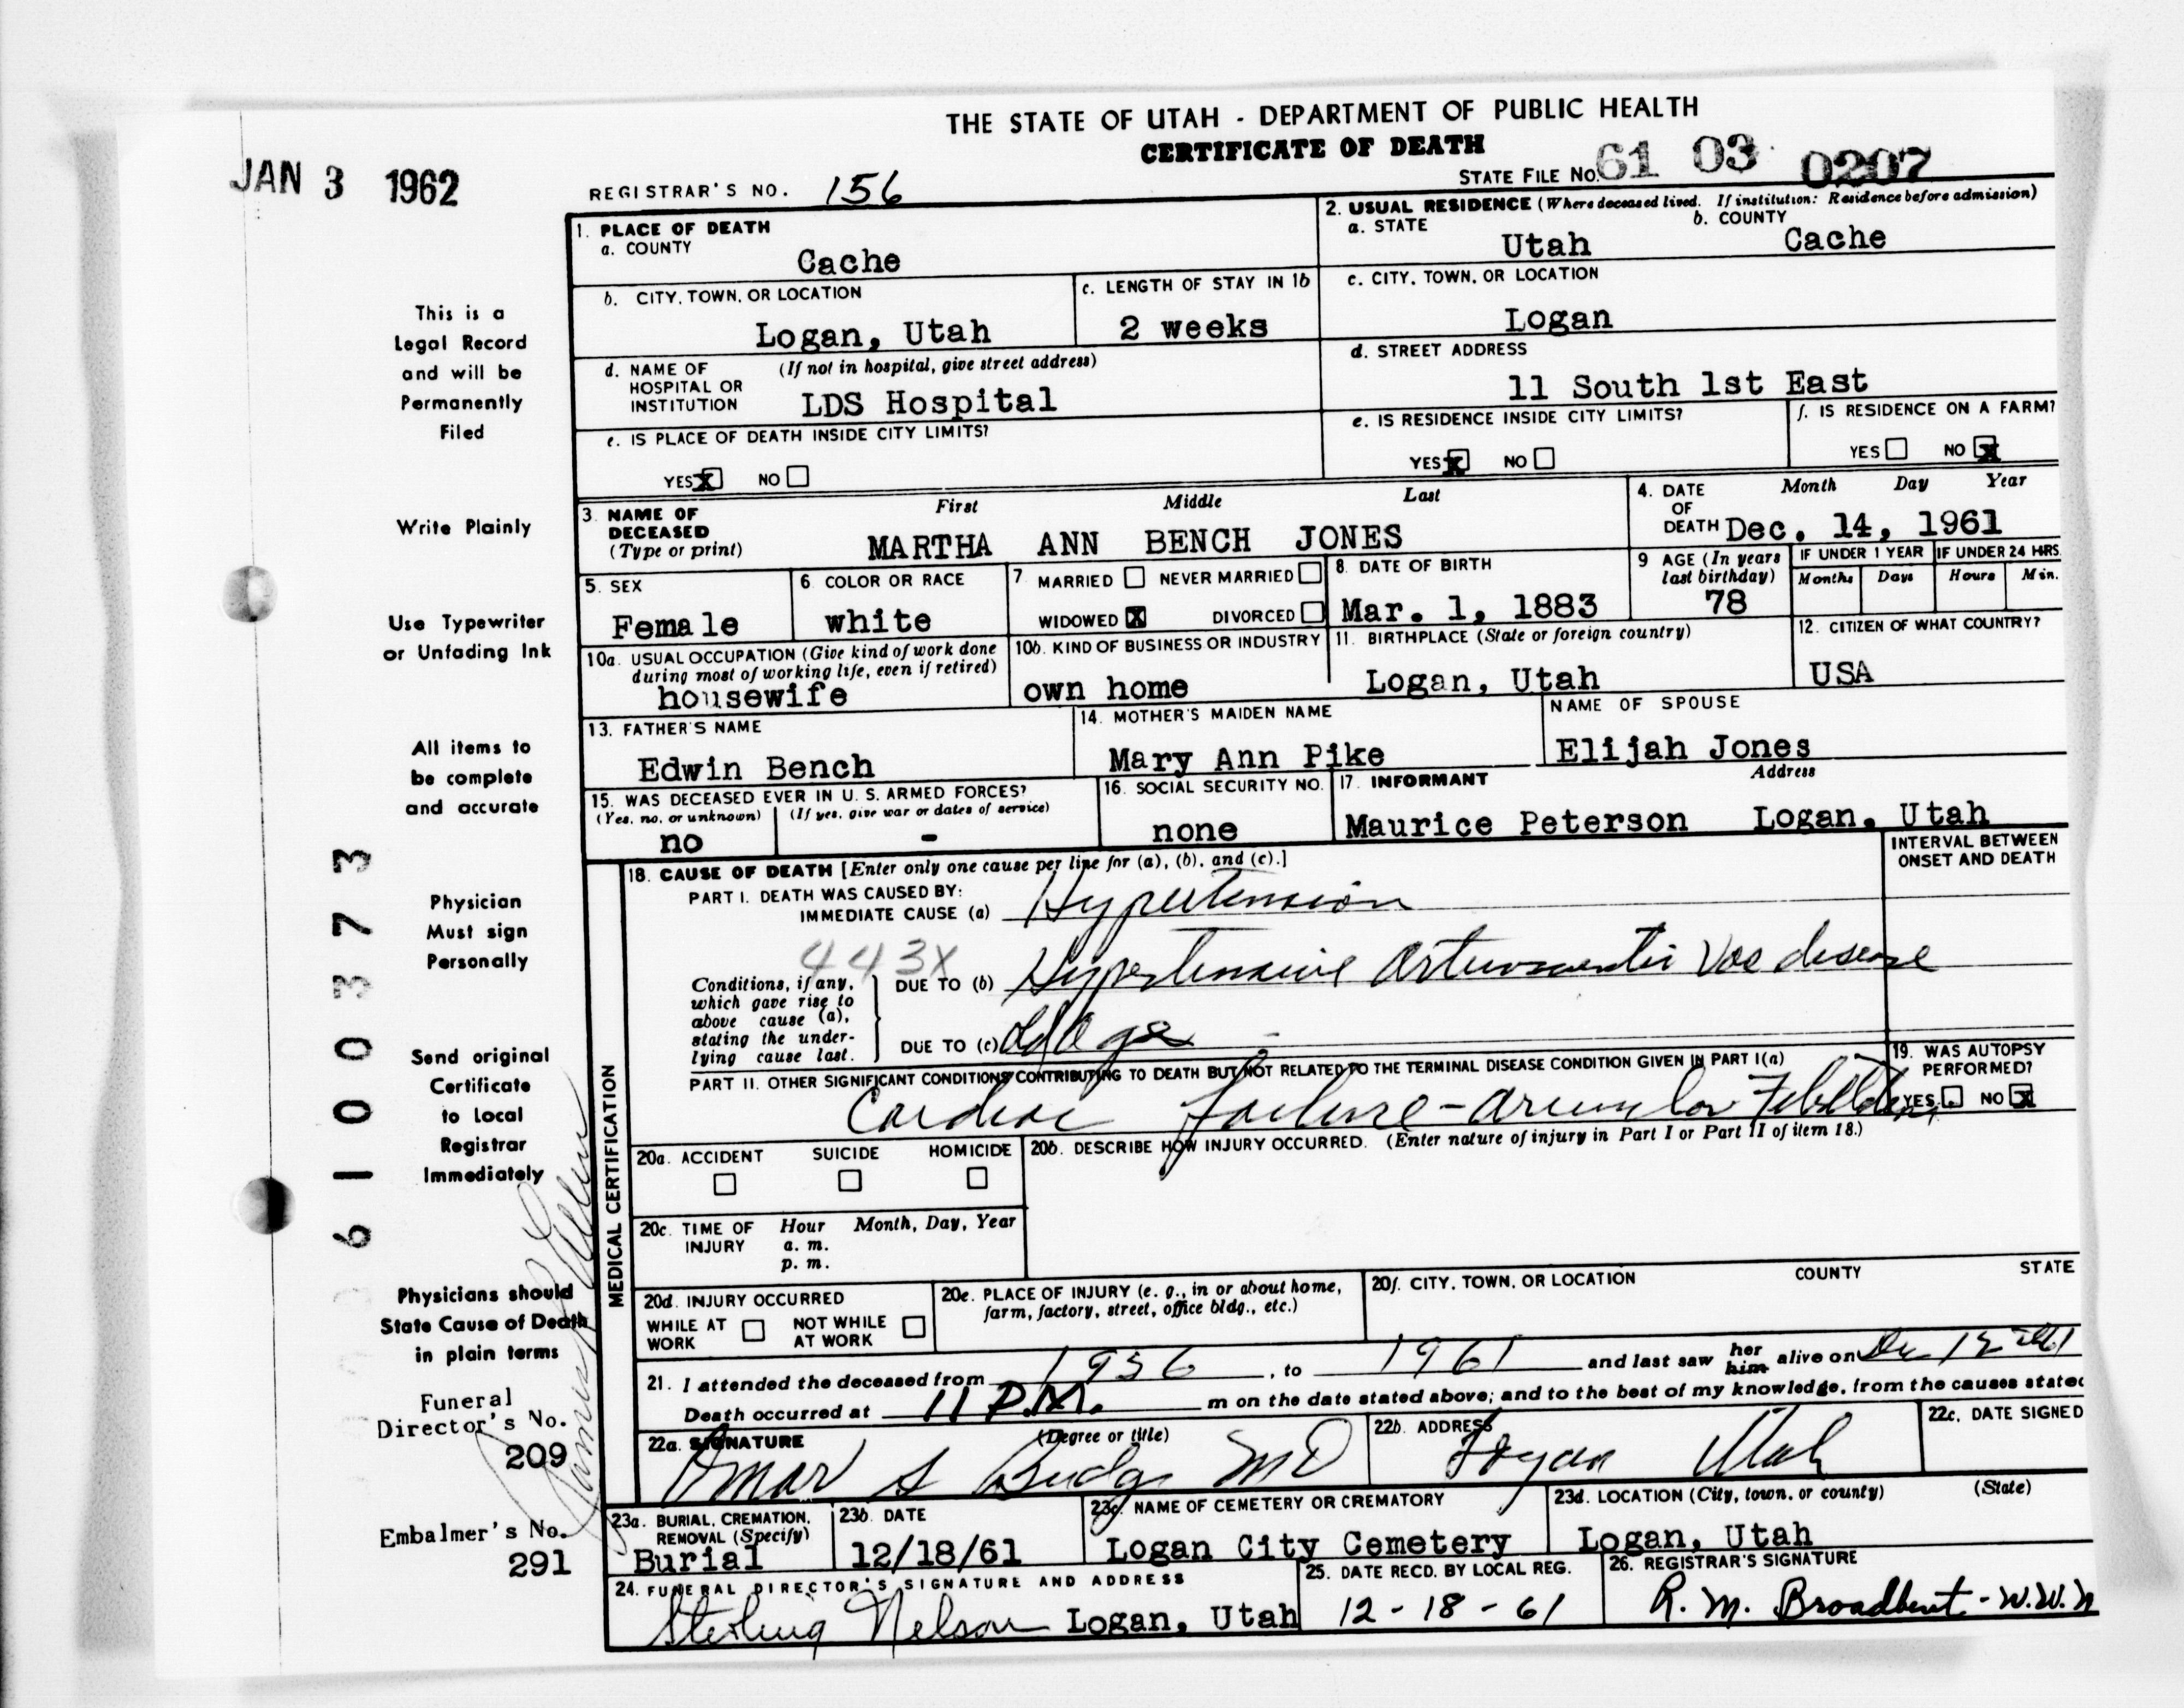 THE STATE OF UTAH - DEPARTMENT OF PUBLIC HEALTH
CERTIFICATE OF DEATH
JAN 3 1962
REGISTRAR'S NO. 156
STATE FILE NO. 61 03 0207
1. PLACE OF DEATH
a. COUNTY
Cache
2. USUAL RESIDENCE (Where deceased lived. If institution: Residence before admission)
a. STATE Utah b. COUNTY Cache
b. CITY, TOWN, OR LOCATION
Logan, Utah
c. LENGTH OF STAY IN 1b
2 weeks
c. CITY, TOWN, OR LOCATION
Logan
d. NAME OF HOSPITAL OR INSTITUTION (If not in hospital, give street address)
LDS Hospital
d. STREET ADDRESS
11 South 1st East
e. IS PLACE OF DEATH INSIDE CITY LIMITS?
YES X NO
e. IS RESIDENCE INSIDE CITY LIMITS?
YES X NO
f. IS RESIDENCE ON A FARM?
YES NO X
3. NAME OF DECEASED (Type or print)
First Middle Last
MARTHA ANN BENCH JONES
4. DATE OF DEATH Month Day Year
Dec. 14, 1961
5. SEX
Female
6. COLOR OR RACE
white
7. MARRIED NEVER MARRIED
WIDOWED X DIVORCED
8. DATE OF BIRTH
Mar. 1, 1883
9 AGE (In years last birthday)
78
IF UNDER 1 YEAR
Months Days
IF UNDER 24 HRS.
Hours Min.
10a. USUAL OCCUPATION (Give kind of work done during most of working life, even if retired)
housewife
10b. KIND OF BUSINESS OR INDUSTRY
own home
11. BIRTHPLACE (State or foreign country)
Logan, Utah
12. CITIZEN OF WHAT COUNTRY?
USA
13. FATHER'S NAME
Edwin Bench
14. MOTHER'S MAIDEN NAME
Mary Ann Pike
NAME OF SPOUSE
Elijah Jones
15. WAS DECEASED EVER IN U. S. ARMED FORCES?
(Yes, no, or unknown) (If yes, give war or dates of service)
no -
16. SOCIAL SECURITY NO.
none
17. INFORMANT Address
Maurice Peterson Logan, Utah
MEDICAL CERTIFICATION
18. CAUSE OF DEATH [Enter only one cause per line for (a), (b), and (c).]
INTERVAL BETWEEN ONSET AND DEATH
PART I. DEATH WAS CAUSED BY:
IMMEDIATE CAUSE (a) Hypertension
443X
Conditions, if any, which gave rise to above cause (a), stating the underlying cause last.
DUE TO (b) Hypertensive Vas disease
DUE TO (c) Old age
PART II. OTHER SIGNIFICANT CONDITIONS CONTRIBUTING TO DEATH BUT NOT RELATED TO THE TERMINAL DISEASE CONDITION GIVEN IN PART I(a)
Cardiac failure -
19. WAS AUTOPSY PERFORMED?
YES NO X
20a. ACCIDENT SUICIDE HOMICIDE
20b. DESCRIBE HOW INJURY OCCURRED. (Enter nature of injury in Part I or Part II of item 18.)
20c. TIME OF INJURY Hour Month, Day, Year
a. m.
p. m.
20d. INJURY OCCURRED
WHILE AT WORK NOT WHILE AT WORK
20e. PLACE OF INJURY (e. g., in or about home, farm, factory, street, office bldg., etc.)
20f. CITY, TOWN, OR LOCATION COUNTY STATE
21. I attended the deceased from 1956, to 1961 and last saw her him alive on Dec 12
Death occurred at 11 P.M. m on the date stated above; and to the best of my knowledge, from the causes stated
22a. SIGNATURE (Degree or title)
Omar S Budge MD
22b. ADDRESS
Logan Utah
22c. DATE SIGNED
23a. BURIAL, CREMATION, REMOVAL (Specify)
Burial
23b. DATE
12/18/61
23c. NAME OF CEMETERY OR CREMATORY
Logan City Cemetery
23d. LOCATION (City, town, or county) (State)
Logan, Utah
24. FUNERAL DIRECTOR'S SIGNATURE AND ADDRESS
Sterling Nelson Logan, Utah
25. DATE RECD. BY LOCAL REG.
12-18-61
26. REGISTRAR'S SIGNATURE
R. M. Broadbent - W.W.N
This is a
Legal Record
and will be
Permanently
Filed
Write Plainly
Use Typewriter
or Unfading Ink
All items to
be complete
and accurate
Physician
Must sign
Personally
Send original
Certificate
to Local
Registrar
Immediately
Physicians should
State Cause of Death
in plain terms
Funeral
Director's No.
209
Embalmer's No.
291
61003773